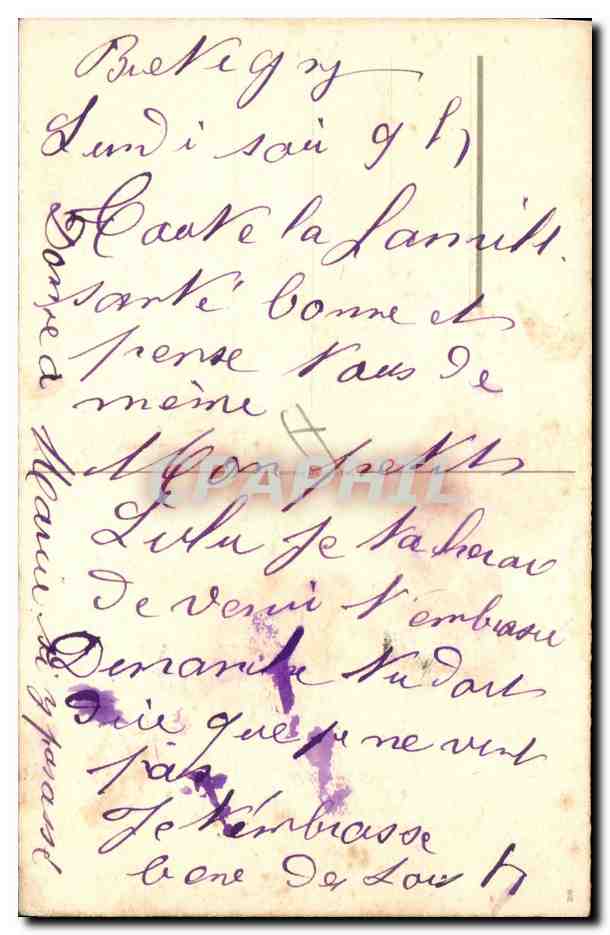 Bretigny
Lundi soir 9 h
Toute la famille
santé bonne et
pense vous de
même
Mon petit
Lulu je tacherai
de venir t'embrasse
Dimanche tu dois
dire que je ne vient
pas
Je t'embrasse
bone de tous
Marcie si y passe
CPAPHIL